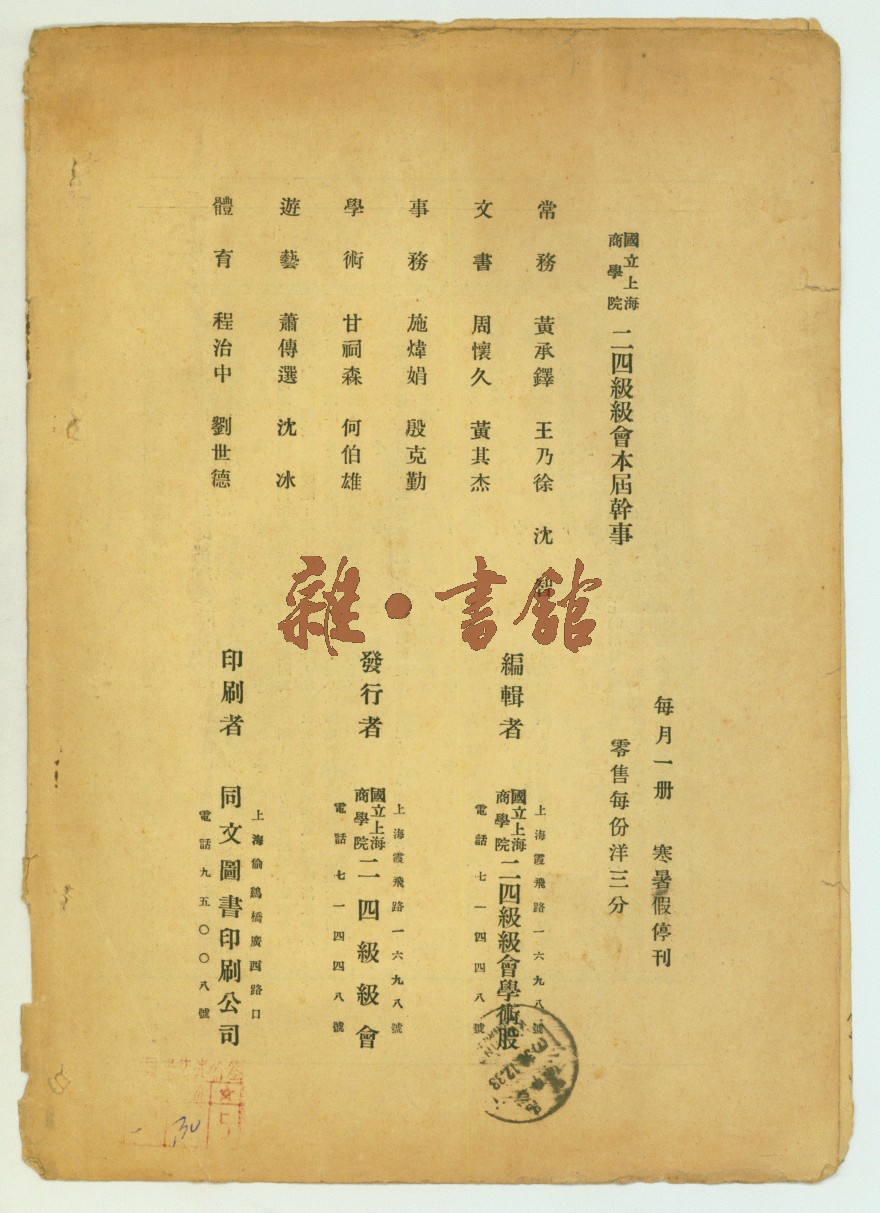 國立上海商學院 二四級級會本屆幹事
常務 黃承鐸 王乃徐 沈
文書 周懷久 黃其杰
事務 施煒娟 殷克勤
學術 甘祠森 何伯雄
遊藝 蕭傳選 沈冰
體育 程治中 劉世德
雜·書館
每月一册 寒暑假停刊
零售每份洋三分
編輯者
上海霞飛路一六九八號
國立上海商學院 二四級級會學術股
電話七一四四八號
發行者
上海霞飛路一六九八號
國立上海商學院 二四級級會
電話七一四四八號
印刷者
上海偷鷄橋廣西路口
同文圖書印刷公司
電話九五〇〇八號